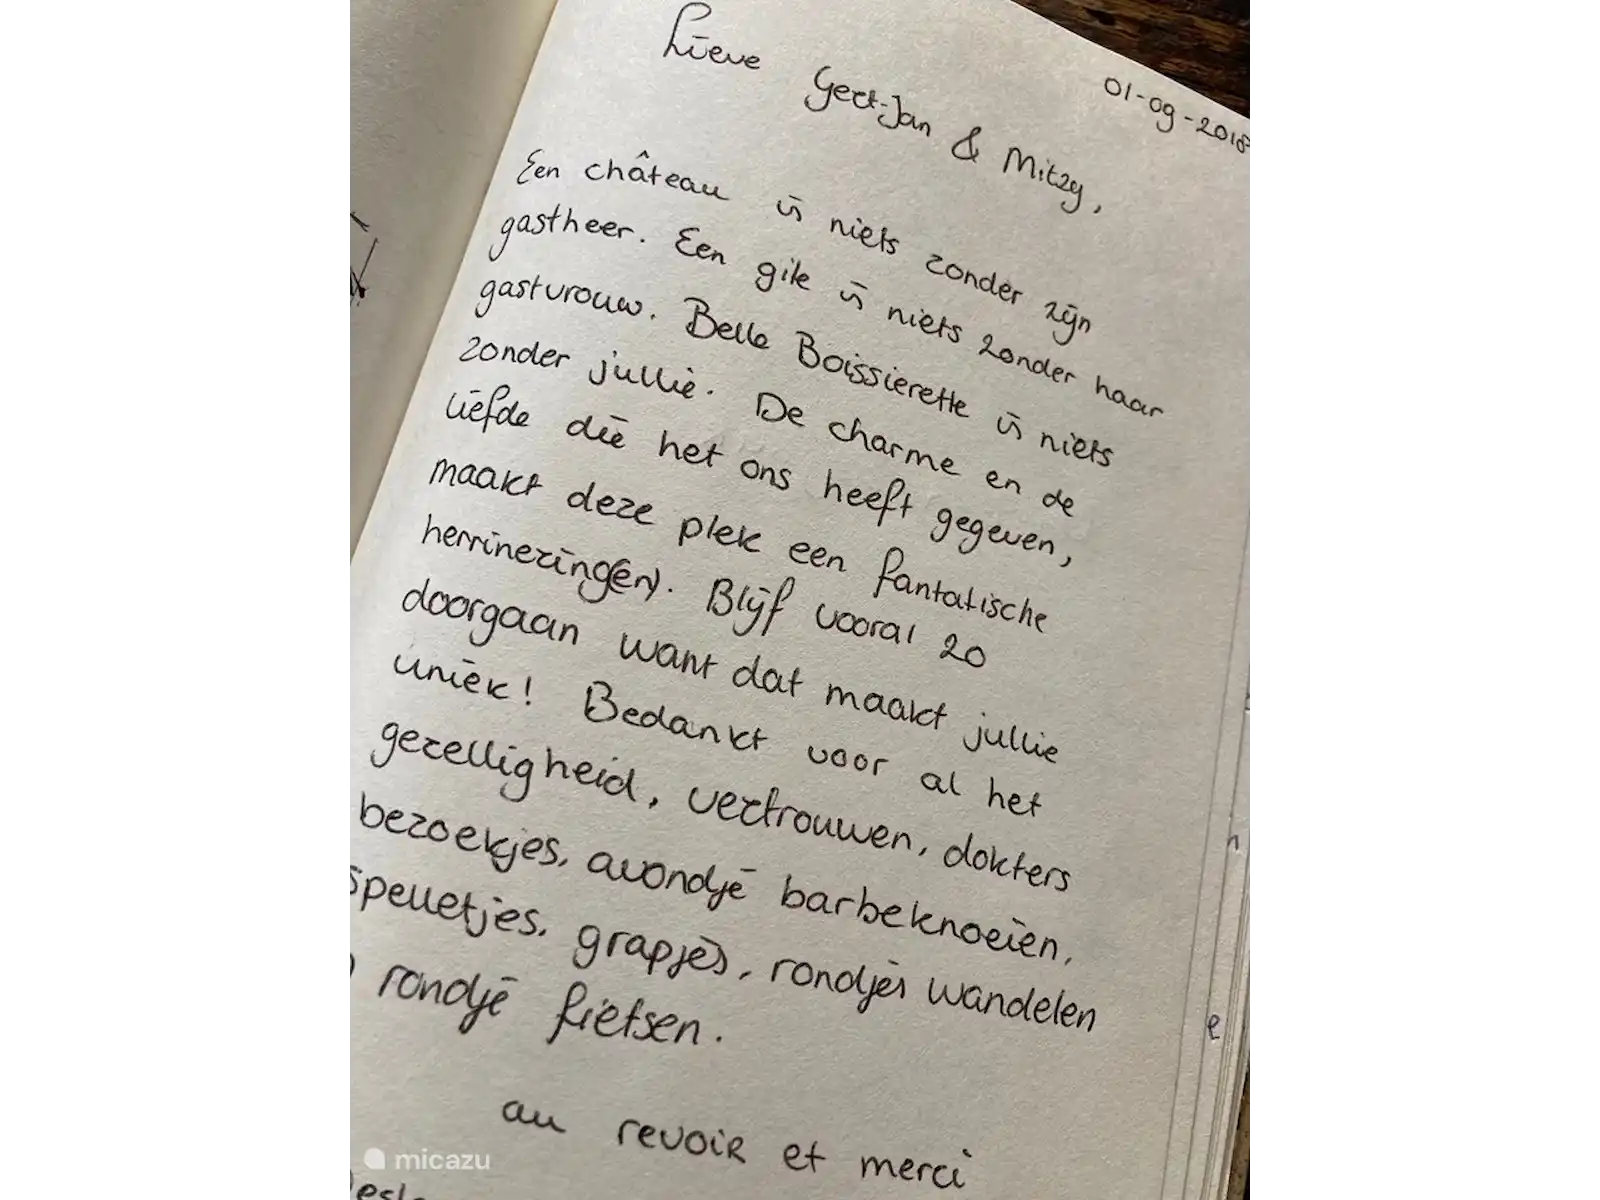 01-09-2018
Lieve Gert-Jan & Mitzy,
Een château is niets zonder zijn
gastheer. Een gite is niets zonder haar
gastvrouw. Belle Boissierette is niets
zonder jullie. De charme en de
liefde die het ons heeft gegeven,
maakt deze plek een fantatische
herrinering(en). Blijf vooral zo
doorgaan want dat maakt jullie
uniek! Bedankt voor al het
gezelligheid, vertrouwen, dokters
bezoekjes, avondje barbeknoeien,
spelletjes, grapjes, rondjes wandelen
rondje fietsen.
au revoir et merci
micazu